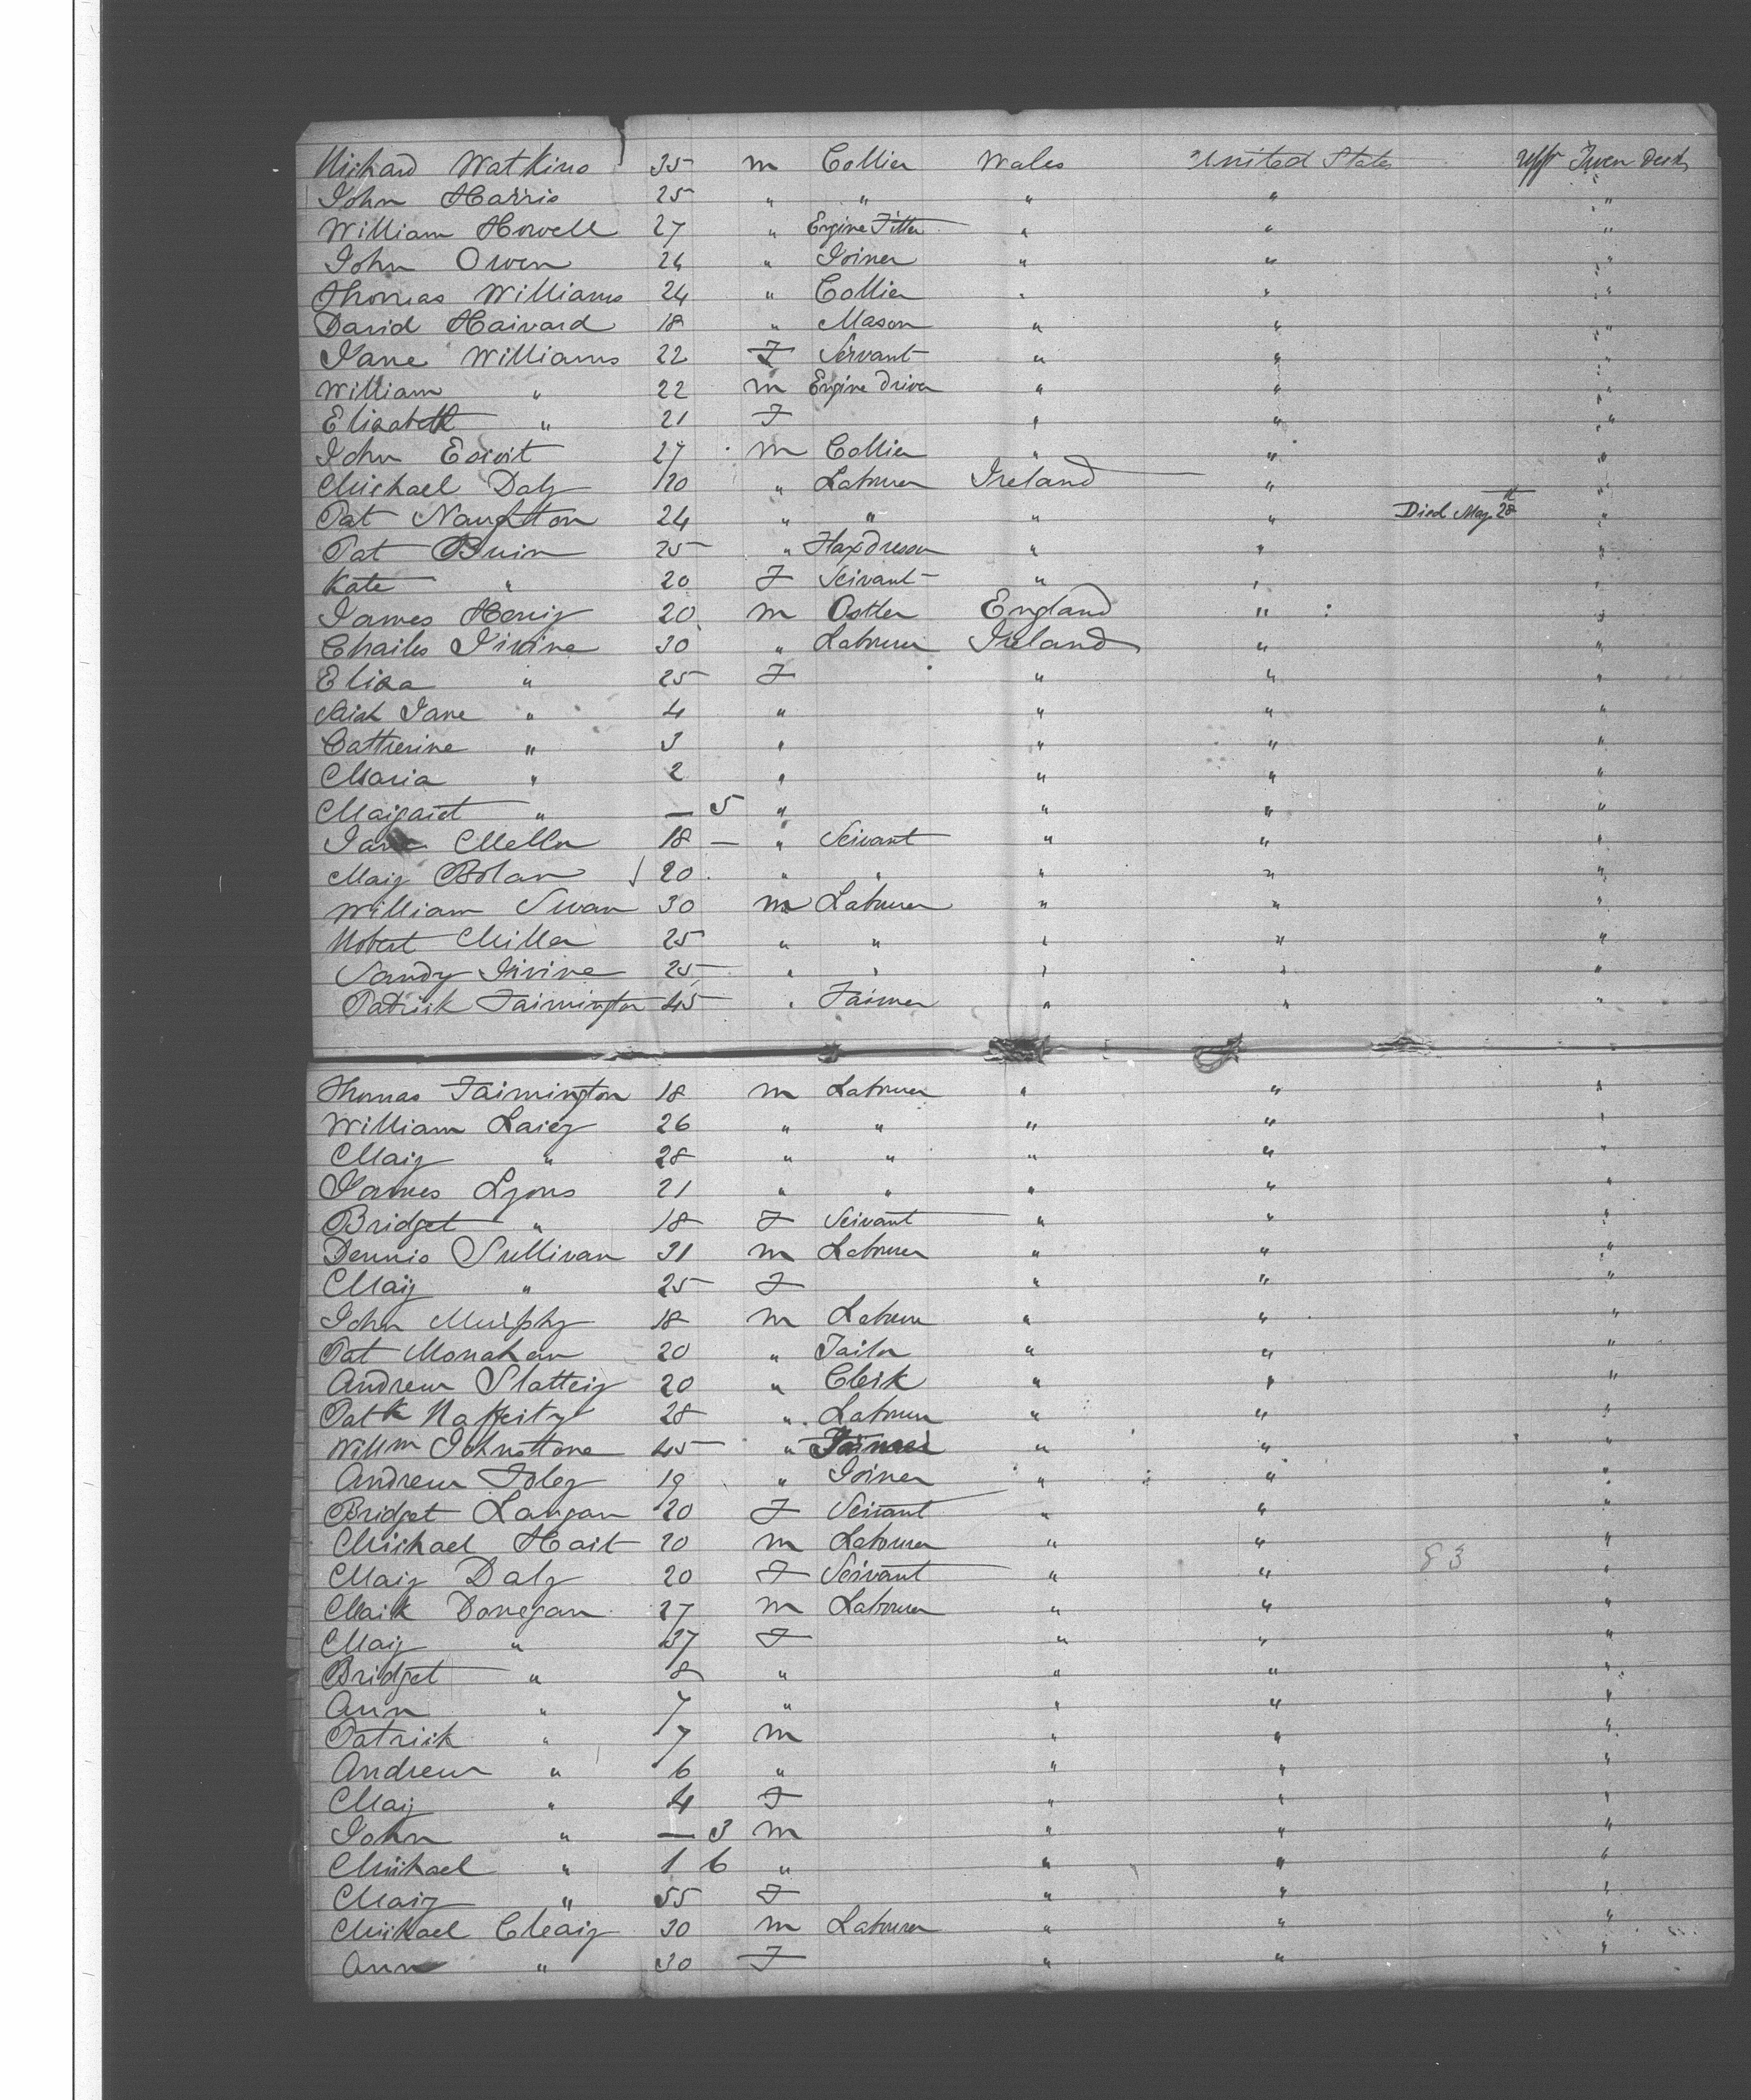 Richard Watkins 35 m Collier Wales United States Uppr Tween Deck
John Harris 25 " " " " "
William Howell 27 " Engine Fitter " " "
John Owen 24 " Joiner " " "
Thomas Williams 24 " Collier " " "
David Harvard 18 " Mason " " "
Jane Williams 22 F Servant " " "
William " 22 m Engine driver " " "
Elizabeth " 21 F " " "
John 27 m Collier " " "
Michael Daly 20 " Labourer Ireland " "
Pat Naughton 24 " " " " Died May 28th "
Pat Bruin 25 " Flaxdresser " " "
Kate " 20 F Servant " " "
James Henry 20 m Ostler England " "
Charles Irvine 30 " Labourer Ireland " "
Eliza " 25 F " " "
Sarah Jane " 4 " " " "
Catherine " 3 " " " "
Maria " 2 " " " "
Margaret " — 5 " " " "
Jane Mellon 18 — " Servant " " "
Mary Bolan 20 " " " " "
William Swan 30 m Labourer " " "
Robert Miller 25 " " " " "
Sandy Irvine 25 " " " " "
Patrick Farmington 45 " Farmer " " "
Thomas Farmington 18 m Labourer " " "
William Larey 26 " " " " "
Mary " 28 " " " " "
James Lyons 21 " " " " "
Bridget " 18 F Servant " " "
Dennis Sullivan 31 m Labourer " " "
Mary " 25 F " " "
John Murphy 18 m Labourer " " "
Pat Monahan 20 " Tailor " " "
Andrew Slattery 20 " Clerk " " "
Patk Rafferty 28 " Labourer " " "
Willm Johnstone 45 " Farmer " " "
Andrew Foley 19 " Joiner " " "
Bridget Langan 20 F Servant " " "
Michael Hart 20 m Labourer " " "
Mary Daly 20 F Servant " " 83 "
Mark Donegan 27 m Labourer " " "
Mary " 37 F " " "
Bridget " 8 " " " "
Ann " 7 " " " "
Patrick " 7 m " " "
Andrew " 6 " " " "
Mary " 4 F " " "
John " — 3 m " " "
Michael " 1 6 " " " "
Mary " 55 F " " "
Michael Cleary 30 m Labourer " " "
Ann " 30 F " " "